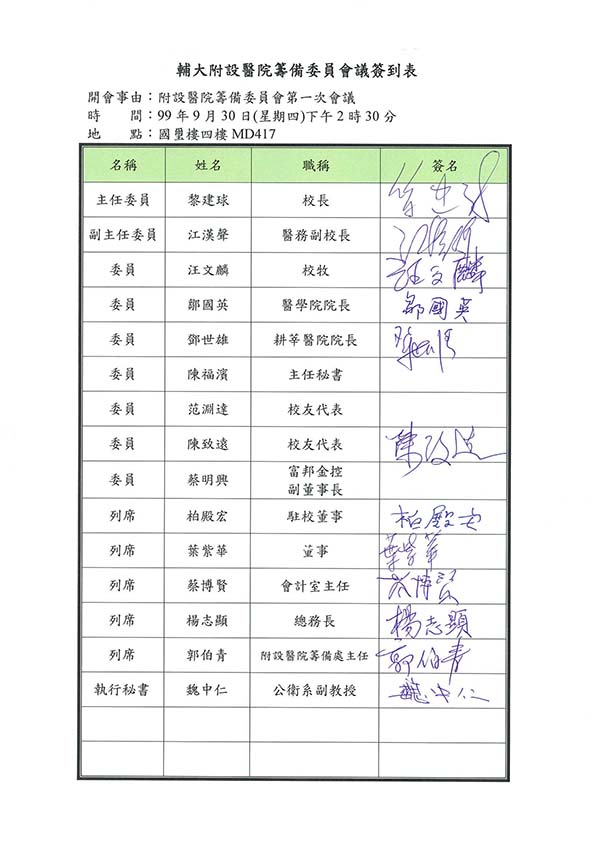 輔大附設醫院籌備委員會議簽到表
開會事由：附設醫院籌備委員會第一次會議
時　　間：99年9月30日(星期四)下午2時30分
地　　點：國璽樓四樓MD417
名稱 姓名 職稱 簽名
主任委員 黎建球 校長
副主任委員 江漢聲 醫務副校長 江漢聲
委員 汪文麟 校牧 汪文麟
委員 鄒國英 醫學院院長 鄒國英
委員 鄧世雄 耕莘醫院院長
委員 陳福濱 主任秘書
委員 范淵達 校友代表
委員 陳致遠 校友代表 陳致遠
委員 蔡明興 富邦金控
副董事長
列席 柏殿宏 駐校董事 柏殿宏
列席 葉紫華 董事 葉紫華
列席 蔡博賢 會計室主任 蔡博賢
列席 楊志顯 總務長 楊志顯
列席 郭伯青 附設醫院籌備處主任 郭伯青
執行秘書 魏中仁 公衛系副教授 魏中仁